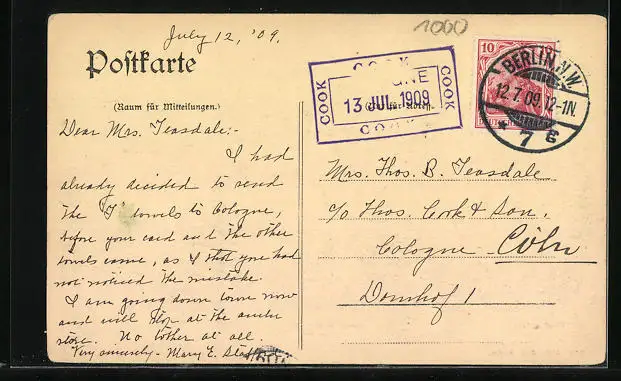 1000
July 12, '09.
Postkarte
(Raum für Mitteilungen.)
COOK
COOK
13 JUL 1909
COOK
COOK
10
BERLIN N.W.
12.7.09.12-1N.
* 7 c
Dear Mrs. Teasdale:-
I had
already decided to send
the "T" towels to Cologne,
before your card and the other
towels came, as I thot you had
not noticed the mistake.
I am going down town now
and will stop at the
store. No bother at all.
Very sincerely - Mary E.
Mrs. Thos. B. Teasdale
c/o Thos. Cook & Son,
Cologne Cöln
Domhof 1